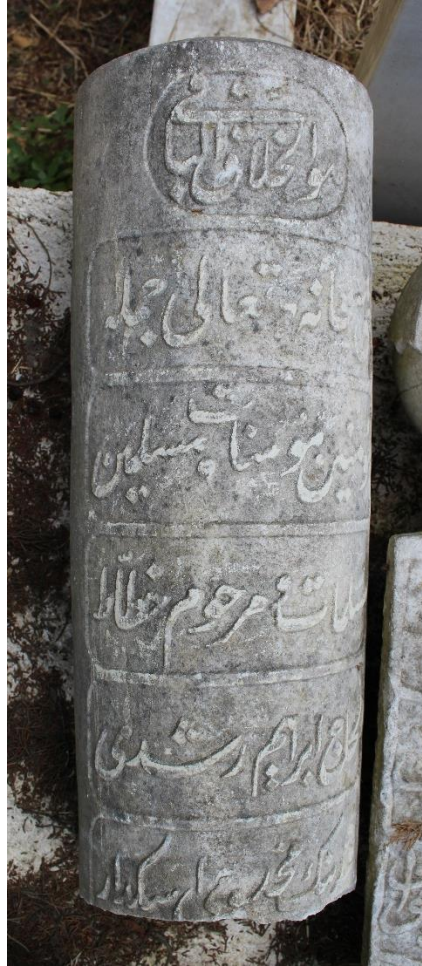 هو الخلاق الباقى
سبحانه و تعالى جمله
مؤمنين مؤمنات و مسلمين
مسلمات و مرحوم خطاط
الحاج ابراهيم رشدى
اسكدار